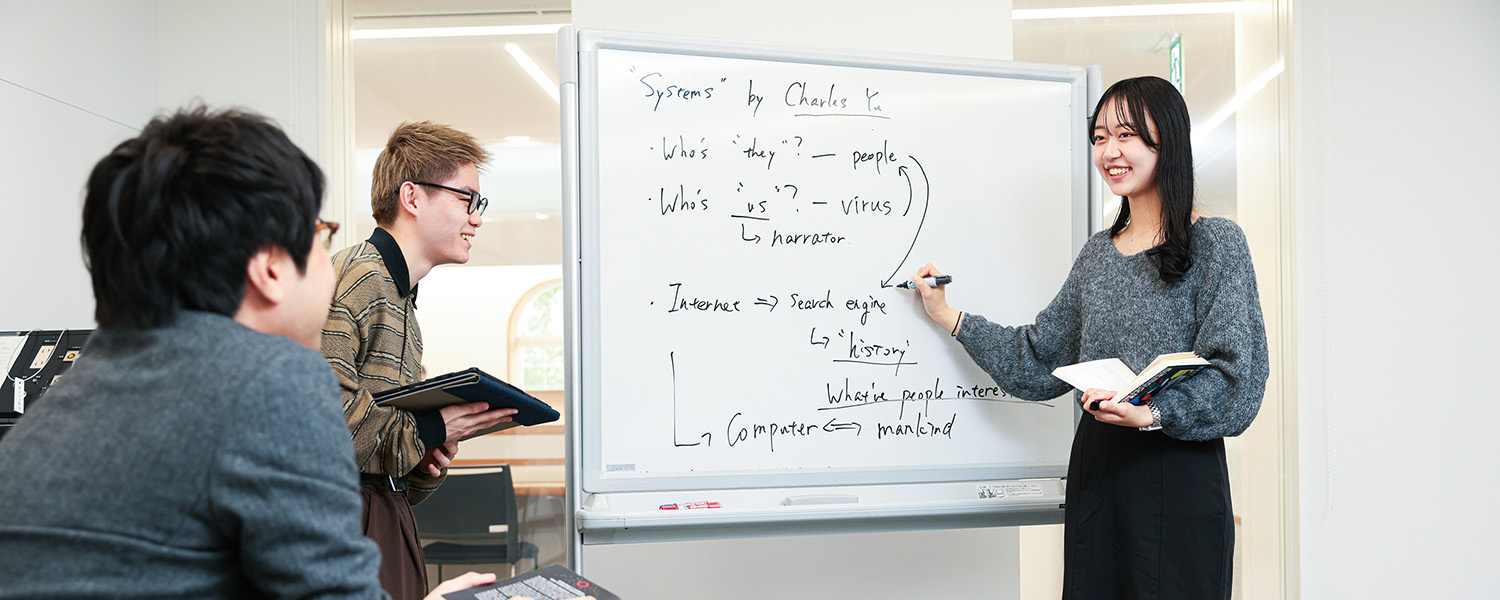 "Systems" by Charles Yu
· Who's "they"? — people
· Who's "us"? — virus
↳ narrator
· Internet ⇒ search engine
↳ "history"
What're people interes
Computer ⇔ mankind